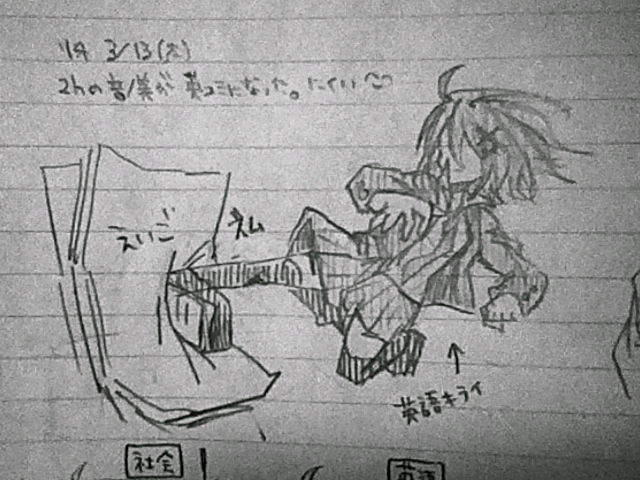 '14 3/13(木)
2hの音/美が英コミになった。にくい
えいご
ネム
英語キライ
社会
英語